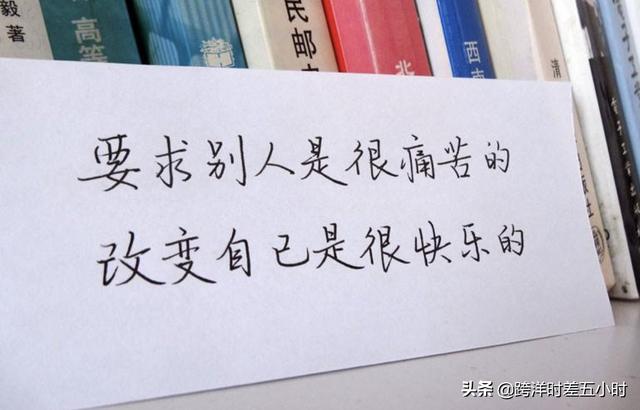 毅著
高等
民邮
北
西南
清
要求别人是很痛苦的
改变自己是很快乐的
头条 @跨洋时差五小时